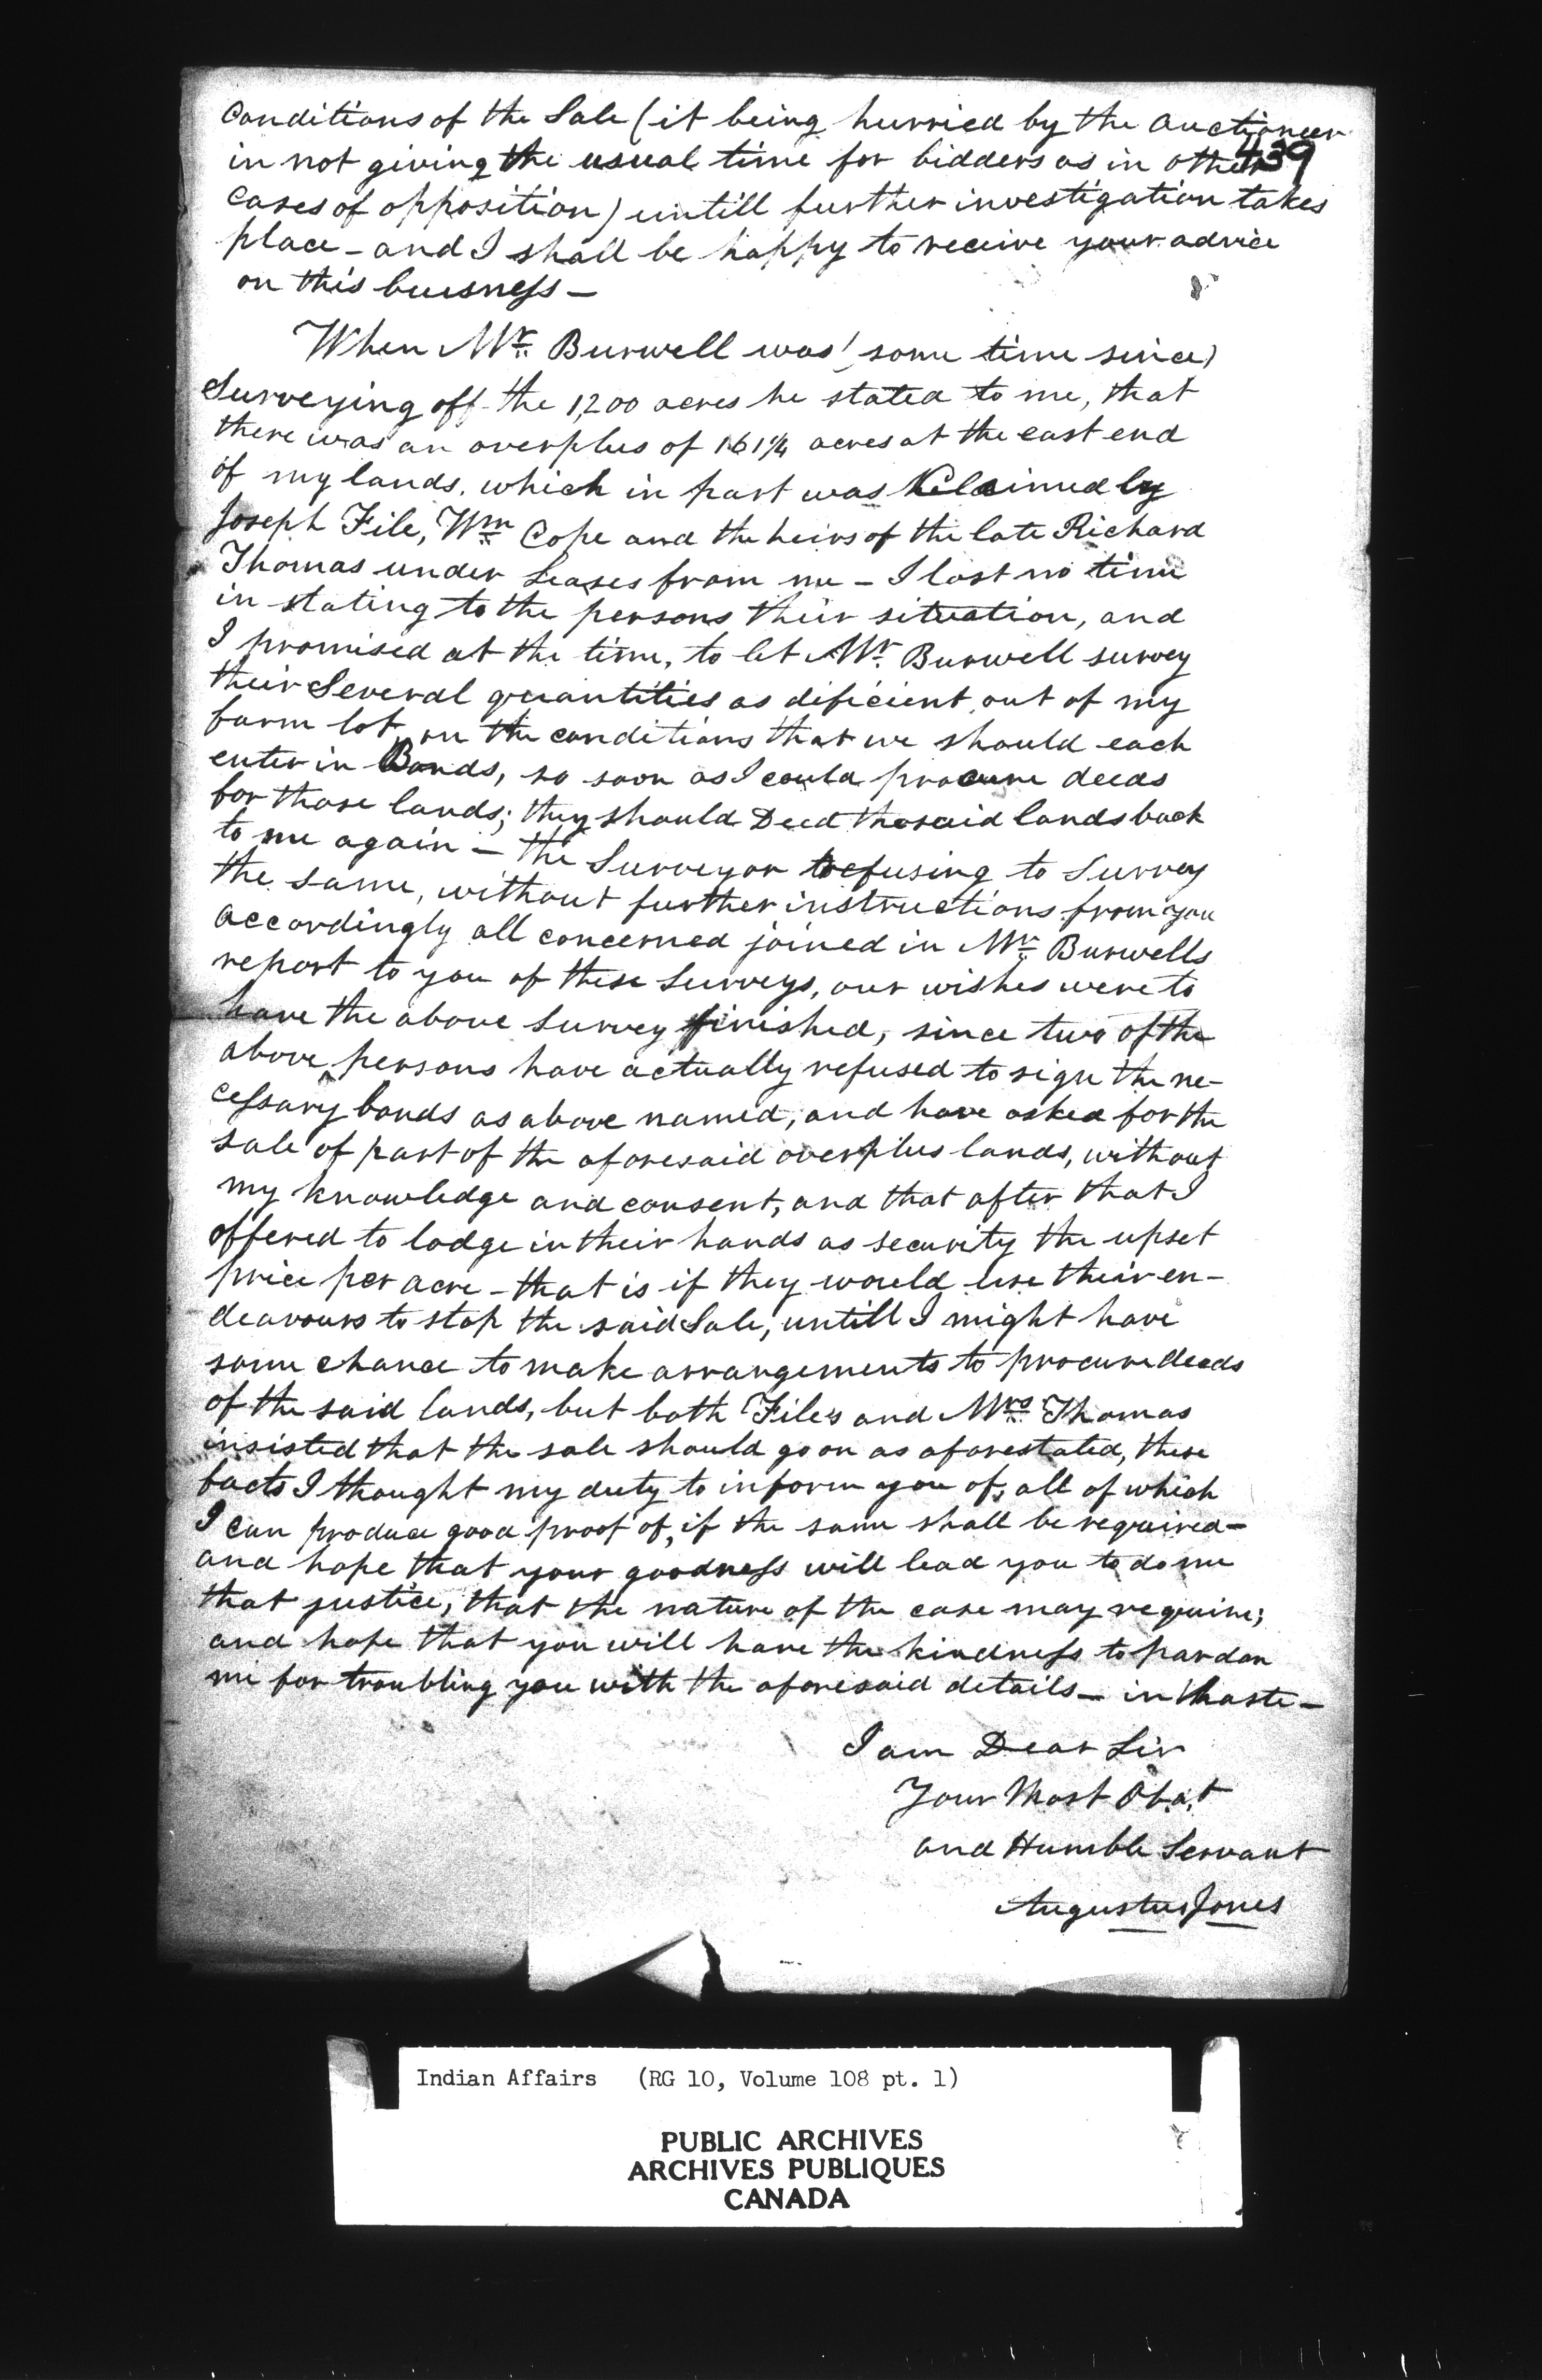 439
Conditions of the Sale (it being hurried by the auctioneer
in not giving the usual time for bidders as in other
cases of opposition) untill further investigation takes
place - and I shall be happy to receive your advice
on this buisness -
When Mr. Burwell was (some time since)
Surveying off the 1,200 acres he stated to me, that
there was an overplus of 161¼ acres at the east end
of my lands, which in part was Claimed by
Joseph File, Wm Cope and the heirs of the late Richard
Thomas under Leases from me - I lost no time
in stating to the persons their situation, and
I promised at the time, to let Mr. Burwell survey
their Several quantities as dificient, out of my
farm lot, on the conditions that we should each
enter in Bonds, so soon as I could procure deeds
for those lands; they should Deed the said lands back
to me again - the Surveyor refusing to Survey
the same, without further instructions from you
accordingly all concerned joined in Mr. Burwells
report to you of these Surveys, our wishes were to
have the above Survey finished, since two of the
above persons have actually refused to sign the ne-
cessary bonds as above named, and have asked for the
sale of part of the aforesaid overplus lands, without
my knowledge and consent, and that after that I
offered to lodge in their hands as security the upset
price per acre - that is if they would use their en-
deavours to stop the said Sale, untill I might have
some chance to make arrangements to procure deeds
of the said lands, but both File's and Mrs. Thomas
insisted that the sale should go on as aforestated, these
facts I thought my duty to inform you of, all of which
I can produce good proof of, if the same shall be required -
and hope that your goodness will lead you to do me
that justice, that the nature of the case may require;
and hope that you will have the kindness to pardon
me for troubling you with the aforesaid details - in haste -
I am Dear Sir
Your Most Obdt
and Humble Servant
Augustus Jones
Indian Affairs (RG 10, Volume 108 pt. 1)
PUBLIC ARCHIVES
ARCHIVES PUBLIQUES
CANADA